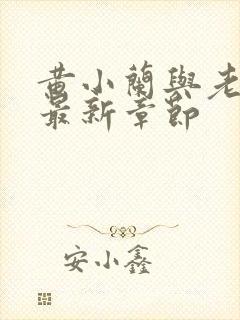 黄小蘭與老
最新章節
安小鑫